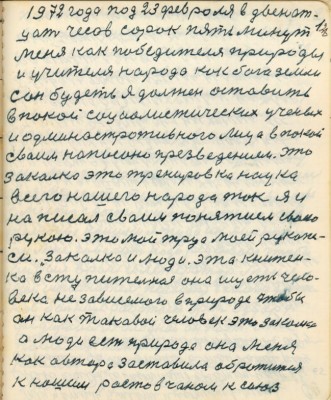 1972 года под 23 февроля в двенат-
цать чесов сорок пять минут
меня как победителя природы
и учителя народа как бога земли
сон будеть я должен оставить
в покой социалистических ученых
и одминастротивного лица в покой
своим написоно презведением. Это
закалка это тренировка наука
всего нашего народа ток я и
написал своим понятием своею
рукою. это мой труд моей рукопи-
си. Закалка и люди. эта книтен-
ка вступителная она ищеть чело-
века независемого в природе чтобы
он как таковой человек это закалка
а люди ест природа она меня
как автора заставила обротится
к нашим ростовчаном к союз